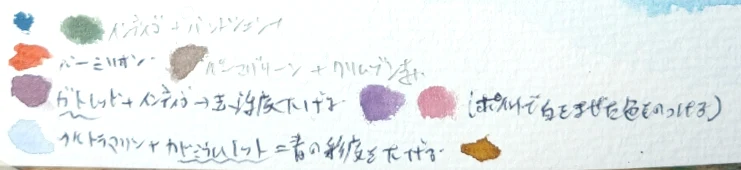 インディゴ+バーントシェンナ
バーミリオン パーマグリーン+クリムソン
カドレッド+インディゴ→ 彩度下げる (ポイントで白をまぜた色をのっける)
ウルトラマリン+カドミウムレッド=青の彩度を下げる